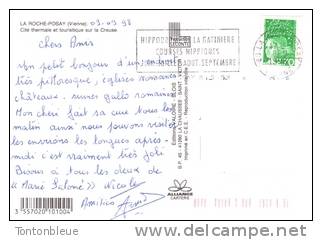 LA ROCHE-POSAY (Vienne) 03.09.98
Cité thermale et touristique sur la Creuse
Chers Amis
Un petit bonjour d'un endroit
très pittoresque, églises romanes
châteaux, ruines gallo romaines
Mon chéri fait sa cure tous les
matin ainsi nous pouvons visiter
les environs les longues après-
midi c'est vraiment très joli
Bisous à tous les deux de
"Marie Salomé" Nicole
Amitiés
3 557020 101004
HIPPODROME LA GATINIERE
COURSES HIPPIQUES
AOUT SEPTEMBRE
B.P. 45 - 41260 LA CHAUSSEE SAINT VICTOR
Imprimé en C.E.E. - Reproduction interdite
ALLIANCE
CARTERIE
Tontonbleue
delcampe.net